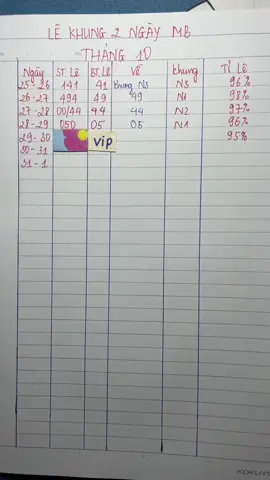 LÊ KHUNG 2 NGÀY MB
THÁNG 10
Ngày ST Lê BT Lê Về Khung Tỉ Lệ
25-26 141 41 Khung N3 N3 96%
26-27 494 49 49 N1 98%
27-28 00/44 44 44 N2 97%
28-29 050 05 05 N1 96%
29-30 vip 95%
30-31
31-1